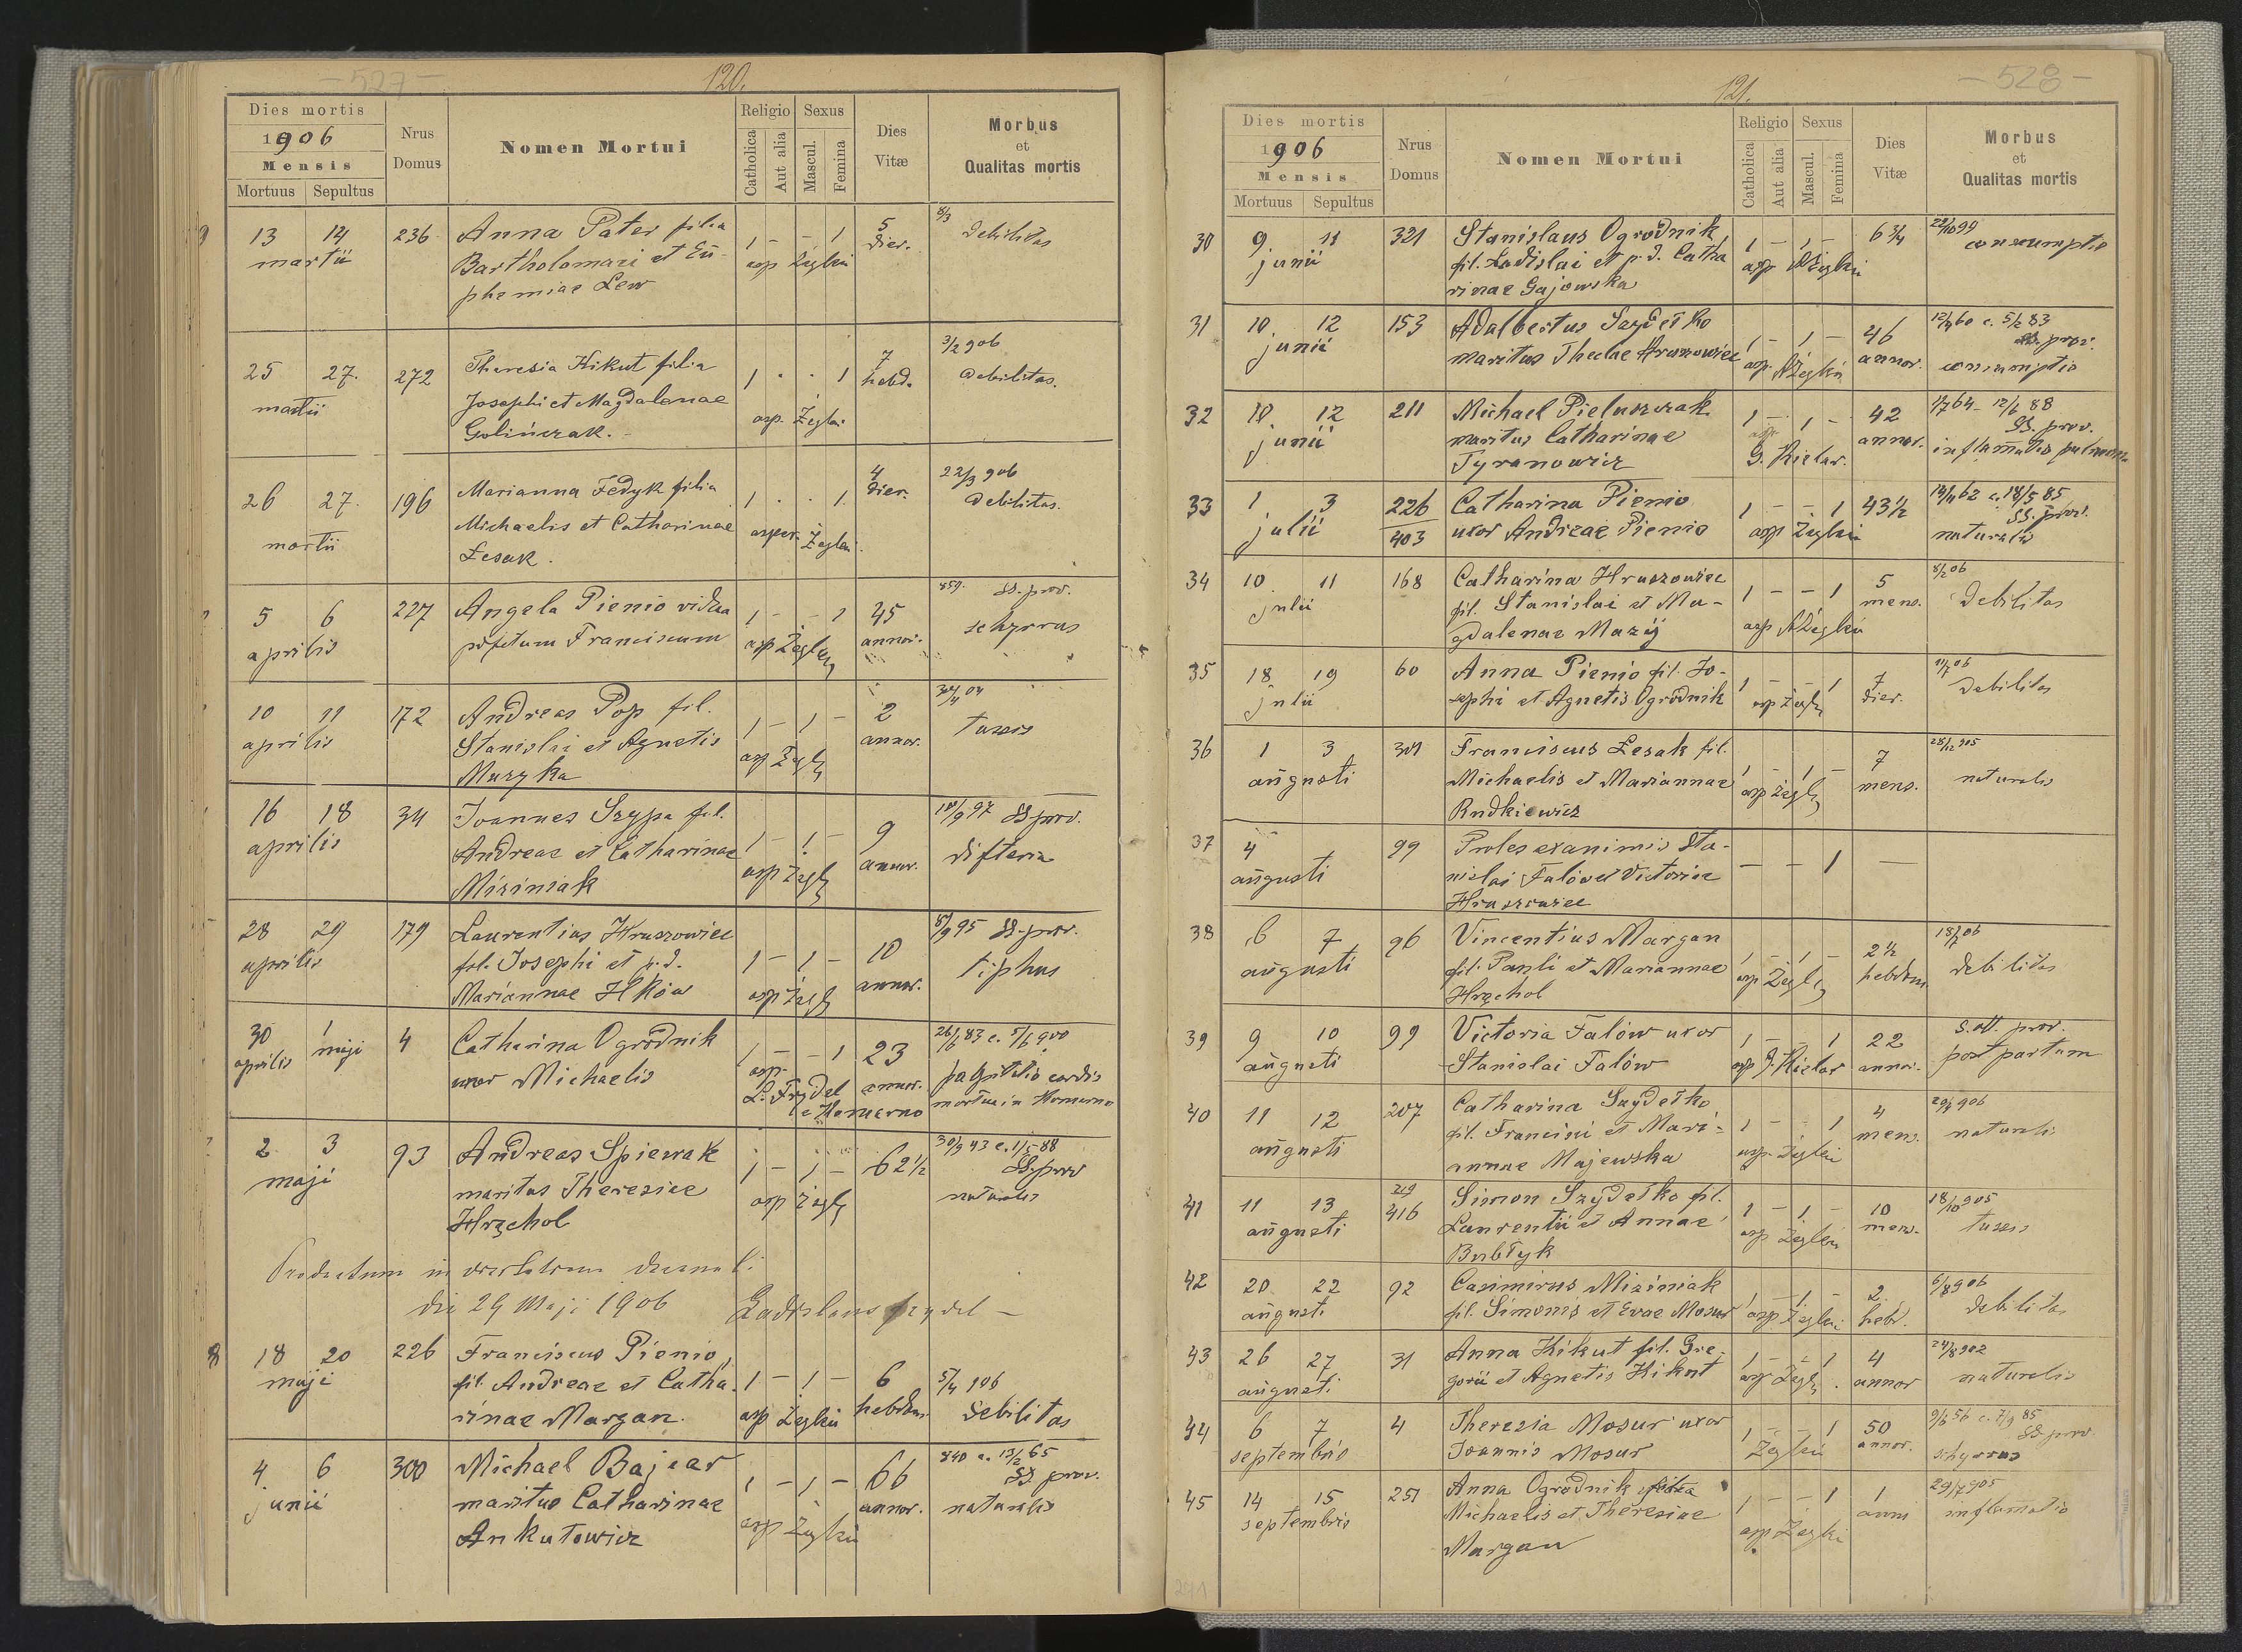 - 527 -
120.
Dies mortis
1906
Mensis
Mortuus Sepultus
Nrus
Domus
Nomen Mortui
Religio
Catholica
Aut alia
Sexus
Mascul.
Femina
Dies
Vitæ
Morbus
et
Qualitas mortis
13 14 236 Anna Pater filia 1 - - 1 5 8/3 debilitas
martii Bartholomaei et Eu- asp Żeglen dier.
phemiae Lew
25 27. 272 Theresia Kikut filia 1 . . 1 7 3/2 906
martii Josephi et Magdalenae asp. Żeglen hebd. debilitas.
Golińczak.
26 27. 196 Marianna Fedyk filia 1 . . 1 4 22/3 906
martii Michaelis et Catharinae asper. Żeglen dier. debilitas.
Łesak.
5 6 227 Angela Pienio vidua 1 - - 1 45 859. SS. prov.
aprilis p. defctum Franciscum asp annor. schyrrus
10 11 172 Andreas Pop fil. 1 - 1 - 2 04
aprilis Stanislai et Agnetis asp Żegl annor. tussis
Muzyka
16 18 34 Joannes Szypa fil. 1 - 1 - 9 97 SS prov.
aprilis Andreae et Catharinae asp Żegl annor. difteria
Miziniak
28 29 179 Laurentius Hruszowiec 1 - 1 - 10 8/9 95 SS. prov.
aprilis fil. Josephi et p. d. asp Żegl annor. tiphus
Mariannae Ilków
30 1 4 Catharina Ogrodnik 1 - - 1 23 83 c. 900
aprilis maji uxor Michaelis asp. annor. palpitatio cordis
L. Frydel mortua in Komarno
e Komarno
2 3 93 Andreas Spiewak 1 - 1 - 62 1/2 30/9 43 c. 88
maji maritus Theresiae asp Żegl SS. prov
Hrąchol naturalis
Productum in
die 29 Maji 1906 Ladislaus Frydel -
18 20 226 Franciscus Pienio, 1 - 1 - 6 5/4 906
maji fil. Andreae et Catha- asp Żeglen hebdom. debilitas
rinae Margan.
4 6 300 Michael Bajcar 1 - 1 - 66 840 c. 13/2 65
junii maritus Catharinae asp annor. SS. prov.
Ankutowicz naturalis
- 528 -
121.
Dies mortis
1906
Mensis
Mortuus Sepultus
Nrus
Domus
Nomen Mortui
Religio
Catholica
Aut alia
Sexus
Mascul.
Femina
Dies
Vitæ
Morbus
et
Qualitas mortis
30 9 11 321 Stanislaus Ogrodnik, 1 - 1 - 6 3/4 99
junii fil. Ladislai et p. d. Catha asp Żeglen consumptio
rinae Gajowska
31 10 12 153 Adalbertus Szydełko 1 - 1 - 46 60 c. 5/2 83
junii maritus Theclae Hruszowiec asp. Żeglen annor. SS. prov.
consumptio
32 10 12 211 Michael Pieluszczak 1 - 1 - 42 64 - 88
junii maritus Catharinae asp. annor. SS. prov.
Tyranowicz G. Kielar. inflamatio pulmonum
33 1 3 226 Catharina Pienio 1 - - 1 43 1/2 62 c. 18/5 85
julii 403 uxor Andreae Pienio asp Żeglen SS. prov.
naturalis
34 10 11 168 Catharina Hruszowiec 1 - - 1 5 8/2 06
julii fil. Stanislai et Ma- asp Żeglen mens. debilitas
gdalenae Mazij
35 18 19 60 Anna Pienio fil. Jo- 1 - - 1 7 11/7 06
julii sephi et Agnetis Ogrodnik asp Żegl dier. debilitas
36 1 3 301 Franciscus Łesak fil. 1 - 1 - 7 28/12 905
augusti Michaelis et Mariannae asp Żegl mens. naturalis
Rudkiewicz
37 4 99 Proles exanimis Sta- - - 1 -
augusti nislai Falów et Victoriae
Hruszowiec
38 6 7 96 Vincentius Margan 1 1 - 2 1/2 18/7 06
augusti fil. Pauli et Mariannae asp Żegl hebdom debilitas
Hrąchol
39 9 10 99 Victoria Falów uxor 1 - - 1 22 prov.
augusti Stanislai Falów asp J. Kielar annor. post partum
40 11 12 207 Catharina Szydełko 1 - - 1 4 906
augusti fil. Francisci et Mari- asp. Żeglen mens. naturalis
annae Majewska
41 11 13 219 Simon Szydełko fil. 1 - 1 - 10 18/10 905
augusti 416 Laurentii et Annae asp Żeglen mens. tussis
Bubłyk
42 20 22 92 Casimirus Miziniak 1 - 1 - 2 6/8 906
augusti fil. Simonis et Evae Mosur asp Żeglen hebd. debilitas
43 26 27 31 Anna Kikut fil. Gre- 1 - - 1 4 24/8 902
augusti gorii et Agnetis Kikut asp Żegl annor naturalis
44 6 7 4 Theresia Mosur uxor 1 - - 1 50 56 c. 7/9 85
septembris Joannis Mosur Żeglen annor. SS prov.
schyrrus
45 14 15 251 Anna Ogrodnik filia 1 - - 1 1 29/7 905
septembris Michaelis et Theresiae asp Żeglen anni inflamatio
Margan